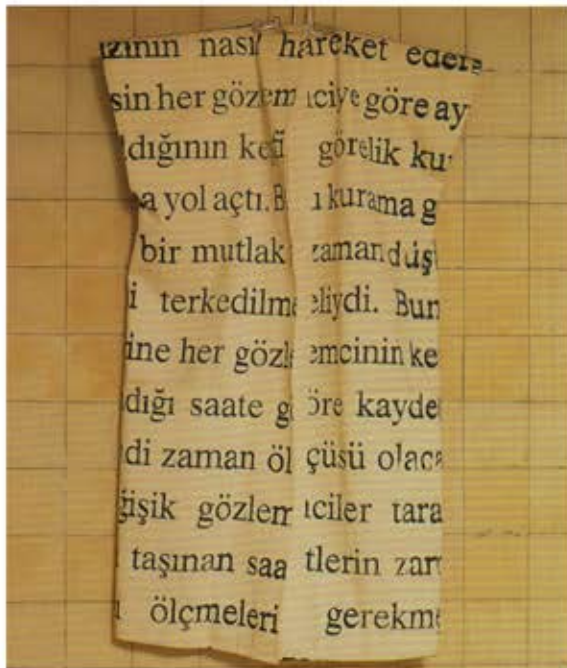 nasıl hareket
sin her gözemciye göre ay
dığının görelik
a yol açtı. kurama g
bir mutlak zaman düş
i terkedilmeliydi. Bun
ine her gözlemcinin ke
dığı saate göre kayde
di zaman ölçüsü olaca
ğişik gözlemciler tara
taşınan saatlerin zam
ölçmeleri gerekme